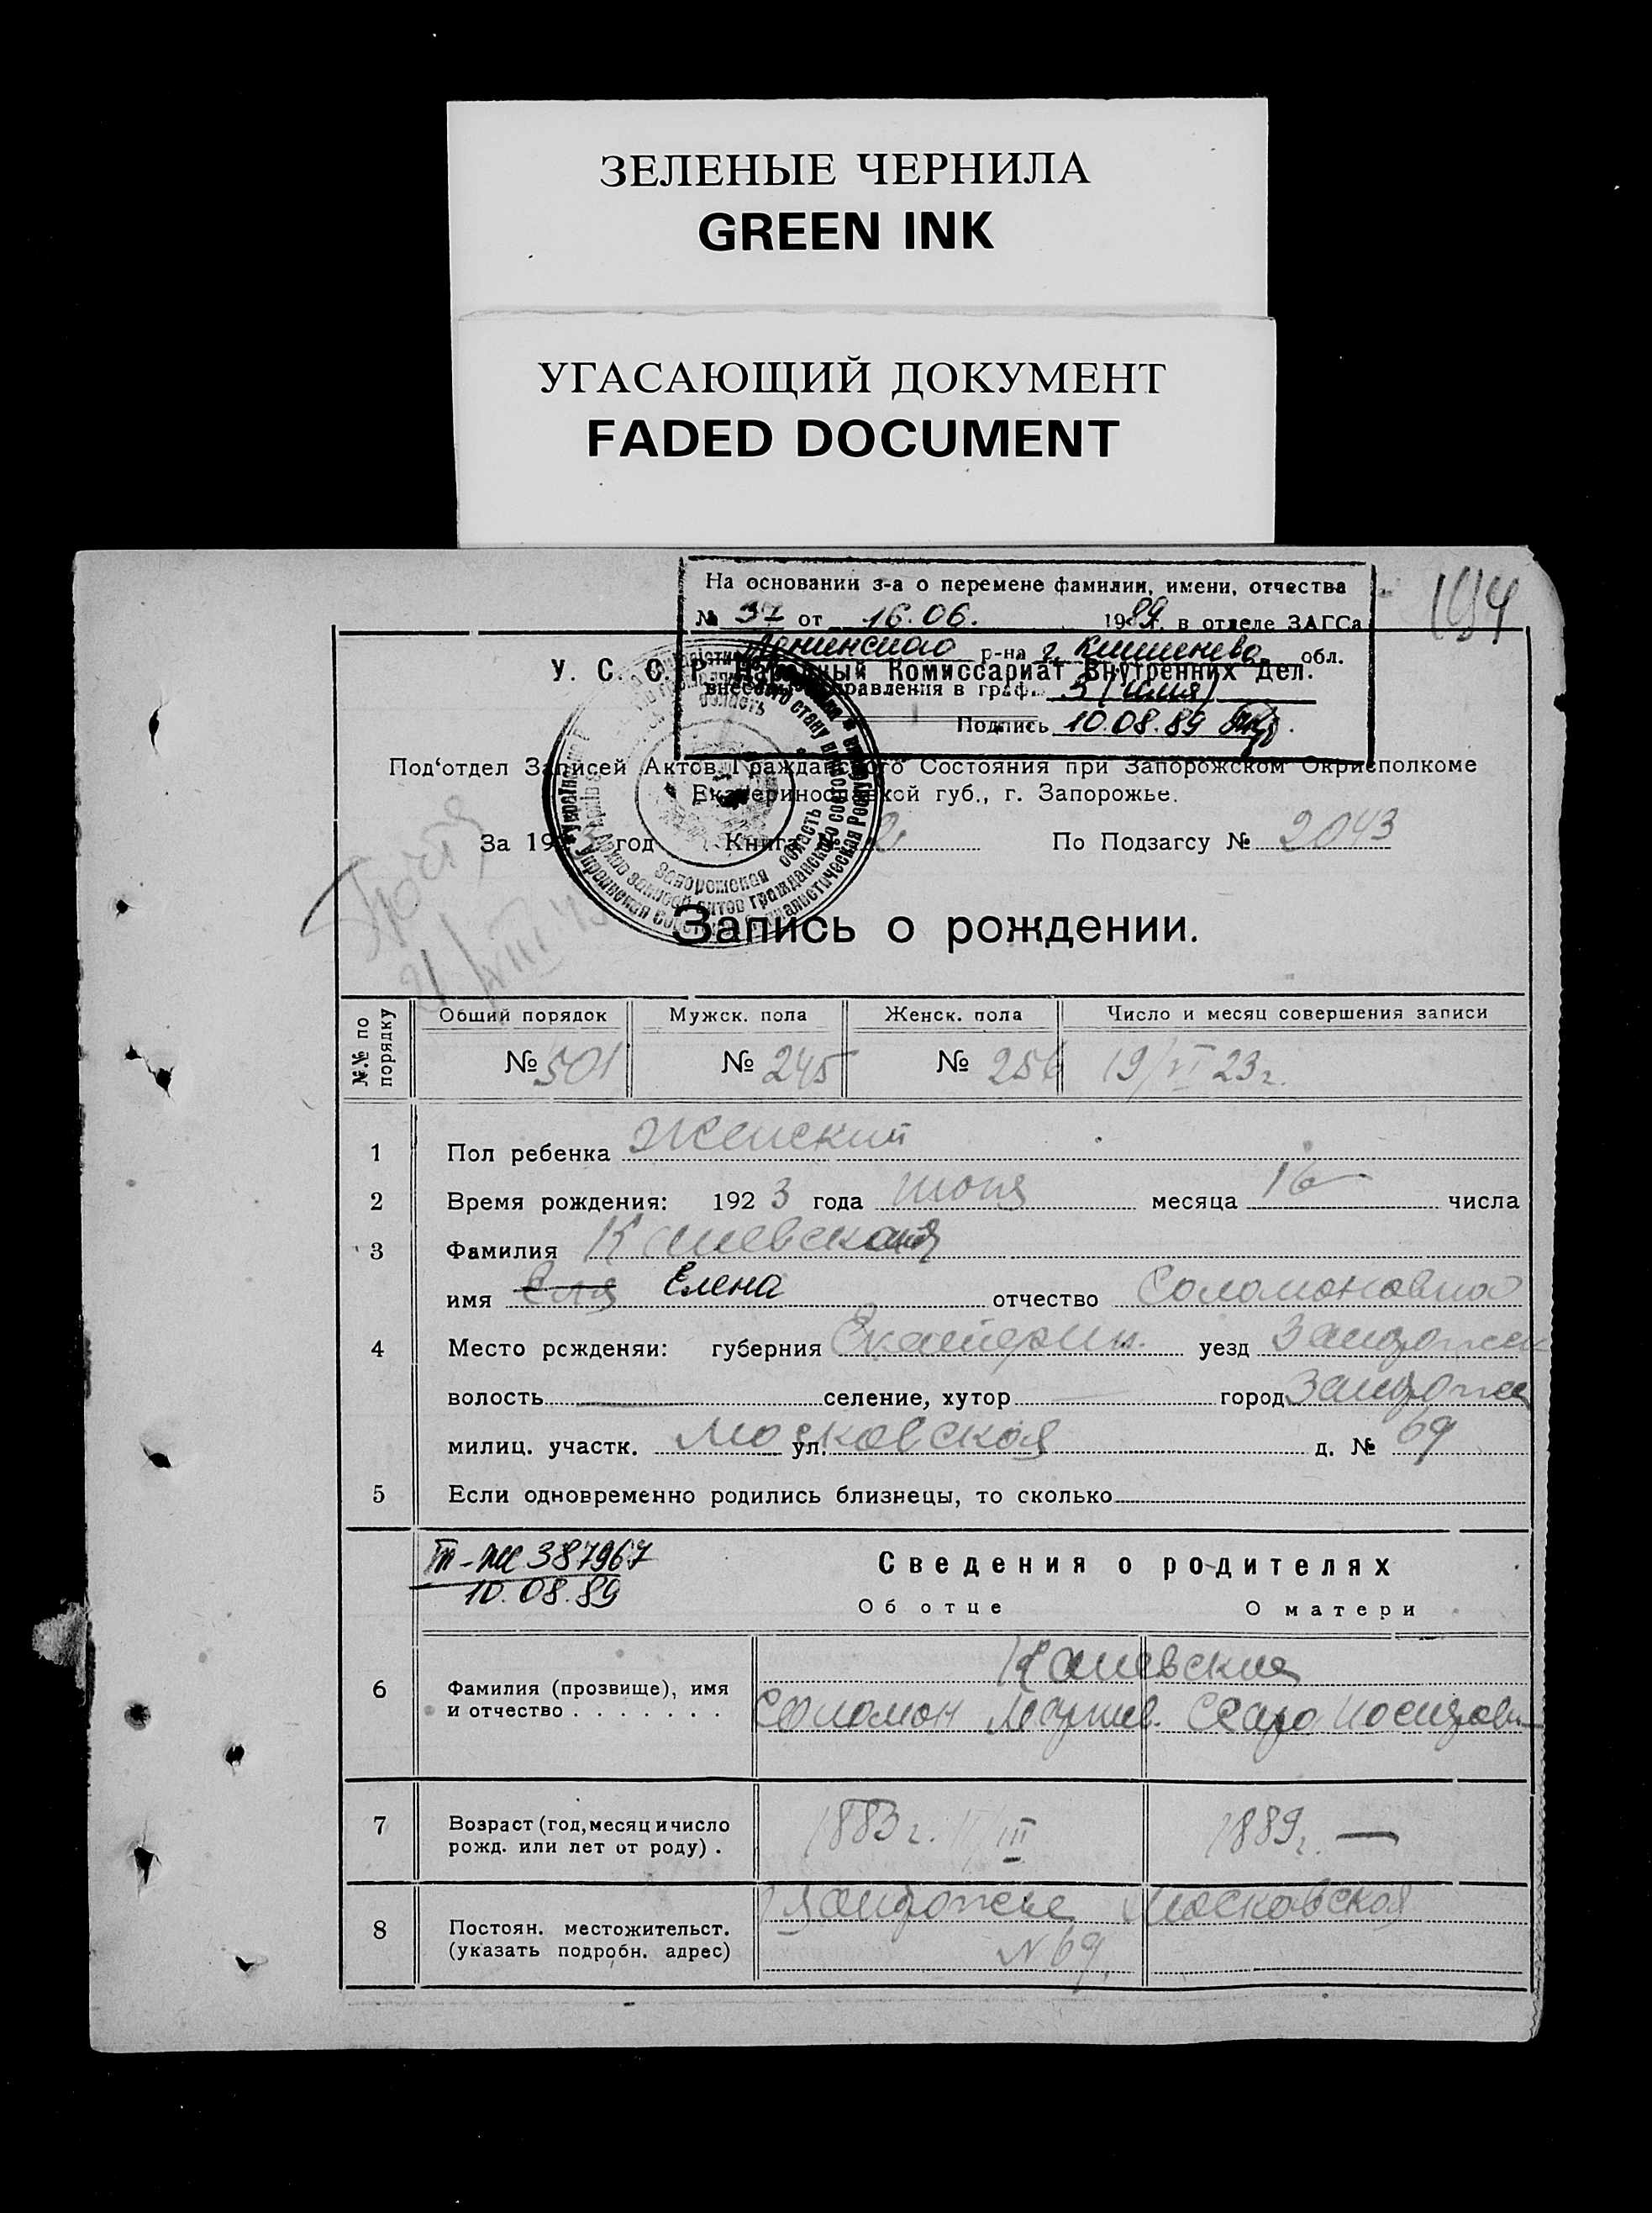 ЗЕЛЕНЫЕ ЧЕРНИЛА
GREEN INK
УГАСАЮЩИЙ ДОКУМЕНТ
FADED DOCUMENT
На основании з-а о перемене фамилии, имени, отчества
№ 37 от 16.06. 1989г. в отделе ЗАГСа
Ленинского р-на г. Кишинева обл.
У. С. С. Р. Народный Комиссариат Внутренних Дел.
внесены исправления в графу 3 (имя)
Подпись 10.08.89
Под'отдел Записей Актов Гражданского Состояния при Запорожском Окрисполкоме
Екатеринославской губ., г. Запорожье.
За 192 год Книга № 2 По Подзагсу № 2043
Запись о рождении.
№№ по порядку
Общий порядок Мужск. пола Женск. пола Число и месяц совершения записи
№ 501 № 245 № 256 19/VI 23г.
1 Пол ребенка Женский
2 Время рождения: 1923 года июня месяца 16 числа
3 Фамилия Каневская
имя Еля Елена отчество Соломоновна
4 Место рожденяи: губерния Екатерин. уезд Запорож
волость селение, хутор город Запорожье
милиц. участк. ул. Московская д. № 69
5 Если одновременно родились близнецы, то сколько
387967
10.08.89
Сведения о родителях
Об отце О матери
Каневские
6 Фамилия (прозвище), имя
и отчество . . . . . . .
Соломон Сара
7 Возраст (год, месяц и число
рожд. или лет от роду) .
1883г. III 1889г. —
8 Постоян. местожительст.
(указать подробн. адрес)
Запорожье Московская
N 69